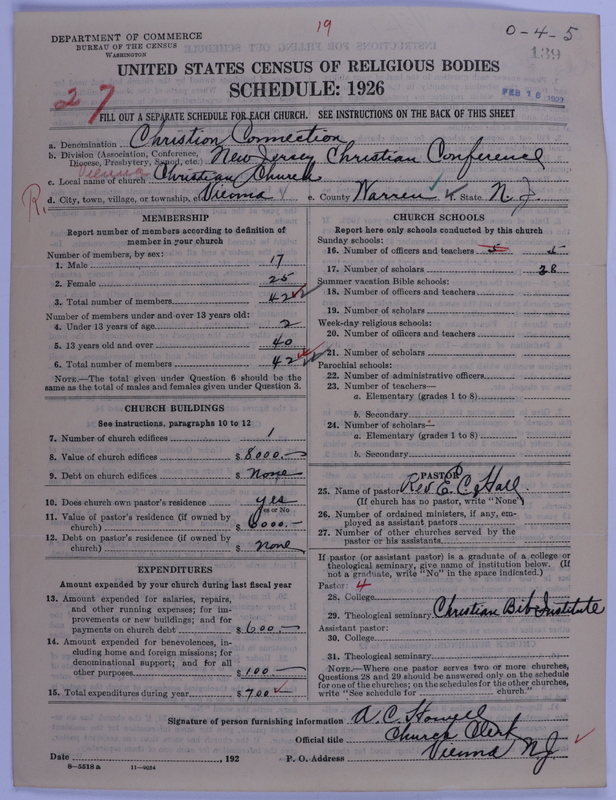 19
O-4-5
139
DEPARTMENT OF COMMERCE
BUREAU OF THE CENSUS
WASHINGTON
UNITED STATES CENSUS OF RELIGIOUS BODIES
SCHEDULE: 1926
27
FILL OUT A SEPARATE SCHEDULE FOR EACH CHURCH. SEE INSTRUCTIONS ON THE BACK OF THIS SHEET
a. Denomination Christian Connection
b. Division (Association, Conference, Diocese, Presbytery, Synod, etc.) New Jersey Christian Conference
Vienna
c. Local name of church Christian Church
R.
d. City, town, village, or township, etc. Vienna e. County Warren f. State N. J.
MEMBERSHIP
Report number of members according to definition of member in your church
Number of members, by sex:
1. Male 17
2. Female 25
3. Total number of members 42
Number of members under and over 13 years old:
4. Under 13 years of age 2
5. 13 years old and over 40
6. Total number of members 42
NOTE.—The total given under Question 6 should be the same as the total of males and females given under Question 3.
CHURCH BUILDINGS
See instructions, paragraphs 10 to 12
7. Number of church edifices 1
8. Value of church edifices $ 8000.—
9. Debt on church edifices $ None
10. Does church own pastor's residence yes
Yes or No
11. Value of pastor's residence (if owned by church) $ 6000.—
12. Debt on pastor's residence (if owned by church) $ None
EXPENDITURES
Amount expended by your church during last fiscal year
13. Amount expended for salaries, repairs, and other running expenses; for improvements or new buildings; and for payments on church debt $ 600.—
14. Amount expended for benevolences, including home and foreign missions; for denominational support; and for all other purposes $ 100.—
15. Total expenditures during year $ 700
CHURCH SCHOOLS
Report here only schools conducted by this church
Sunday schools:
16. Number of officers and teachers 5 5
17. Number of scholars 38
Summer vacation Bible schools:
18. Number of officers and teachers
19. Number of scholars
Week-day religious schools:
20. Number of officers and teachers
21. Number of scholars
Parochial schools:
22. Number of administrative officers
23. Number of teachers—
a. Elementary (grades 1 to 8)
b. Secondary
24. Number of scholars—
a. Elementary (grades 1 to 8)
b. Secondary
PASTOR
25. Name of pastor Rev E. C. Hall
(If church has no pastor, write "None")
26. Number of ordained ministers, if any, employed as assistant pastors
27. Number of other churches served by the pastor or his assistants
If pastor (or assistant pastor) is a graduate of a college or theological seminary, give name of institution below. (If not a graduate, write "No" in the space indicated.)
Pastor: 4
28. College
29. Theological seminary Christian Bib Institute
Assistant pastor:
30. College
31. Theological seminary
NOTE.—Where one pastor serves two or more churches, Questions 28 and 29 should be answered only on the schedule for one of the churches; on the schedules for the other churches, write "See schedule for church."
Signature of person furnishing information A. C. Howell
Official title Church Clerk
Date , 192 P. O. Address Vienna N.J.
8—5518 a 11—9054